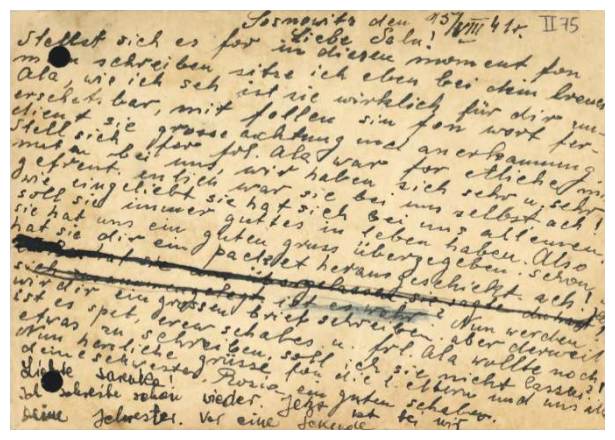 Sosnowitz den 25/VIII 41r. II 75
Liebe Sala!
Stellst sich es for in diesen moment fon
mein schreiben sitze ich eben bei dein
Ala, wie ich seh ist sie wirklich für dir un-
ersetsbar, mit follen sin fon wort fer-
dient sie grosse achtung und anerkannung.
Stell sich for frl. Ala war for etliche mi-
nuten bei uns, wir haben sich sehr u. sehr
gefreut. enlich war sie bei uns selbst ach!
wie eingeliebt sie hat sich bei uns all'einen.
soll sie immer guttes in leben haben. Also
sie hat uns ein guten gruss übergegeben. schon,
hat sie dir ein packet herausgeschickt. ach!
ist es wahr? Nun werden
wir dir ein grossen brief schreiben. aber derweil
ist es spet, erew schabes u. frl. Ala wollte noch
etwas zu schreiben. soll ich sie nicht lassen?!
Nun herzliche grüsse fon die l. eltern und uns alle
deine schwester Rosia. ein guten schabes.
Liebe
Ich schreibe schon wieder. jetz ist bei wir
deine schwester. Vor eine